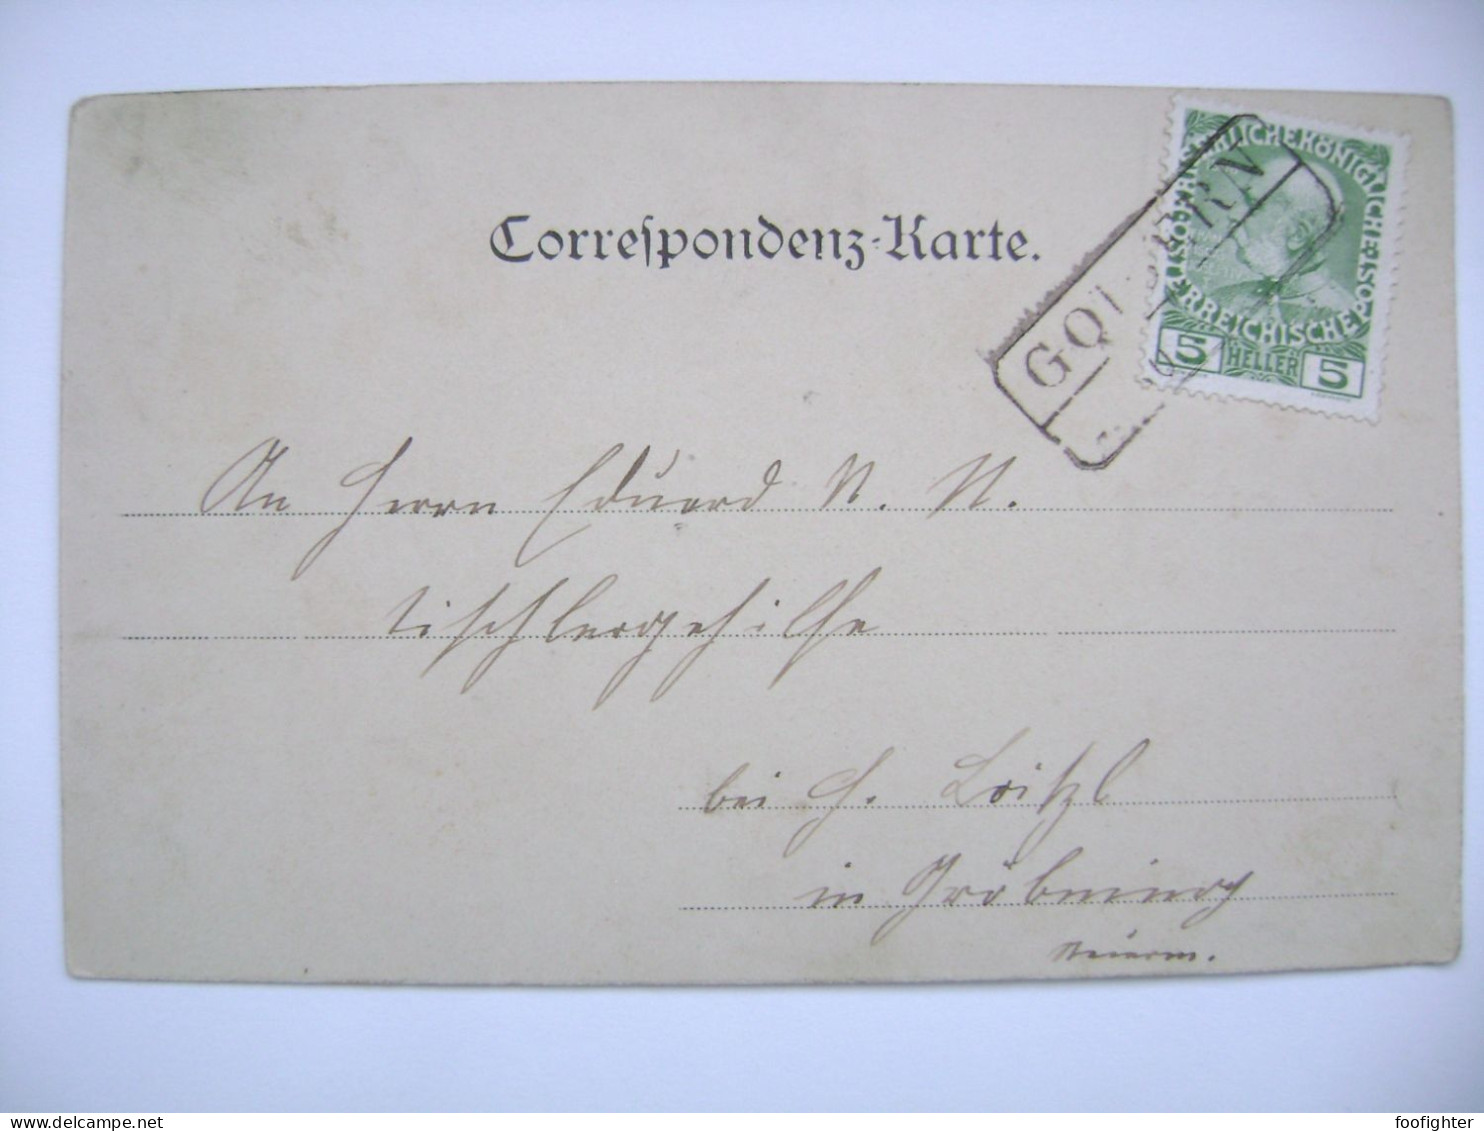 Correspondenz-Karte.
KAISERLICHEKÖNIGLICHE
ÖSTERREICHISCHEPOST
5 HELLER 5
An Herrn Eduard N. N.
Tischlergehilfe
bei H. Loitzl
in Gröbming
foofighter